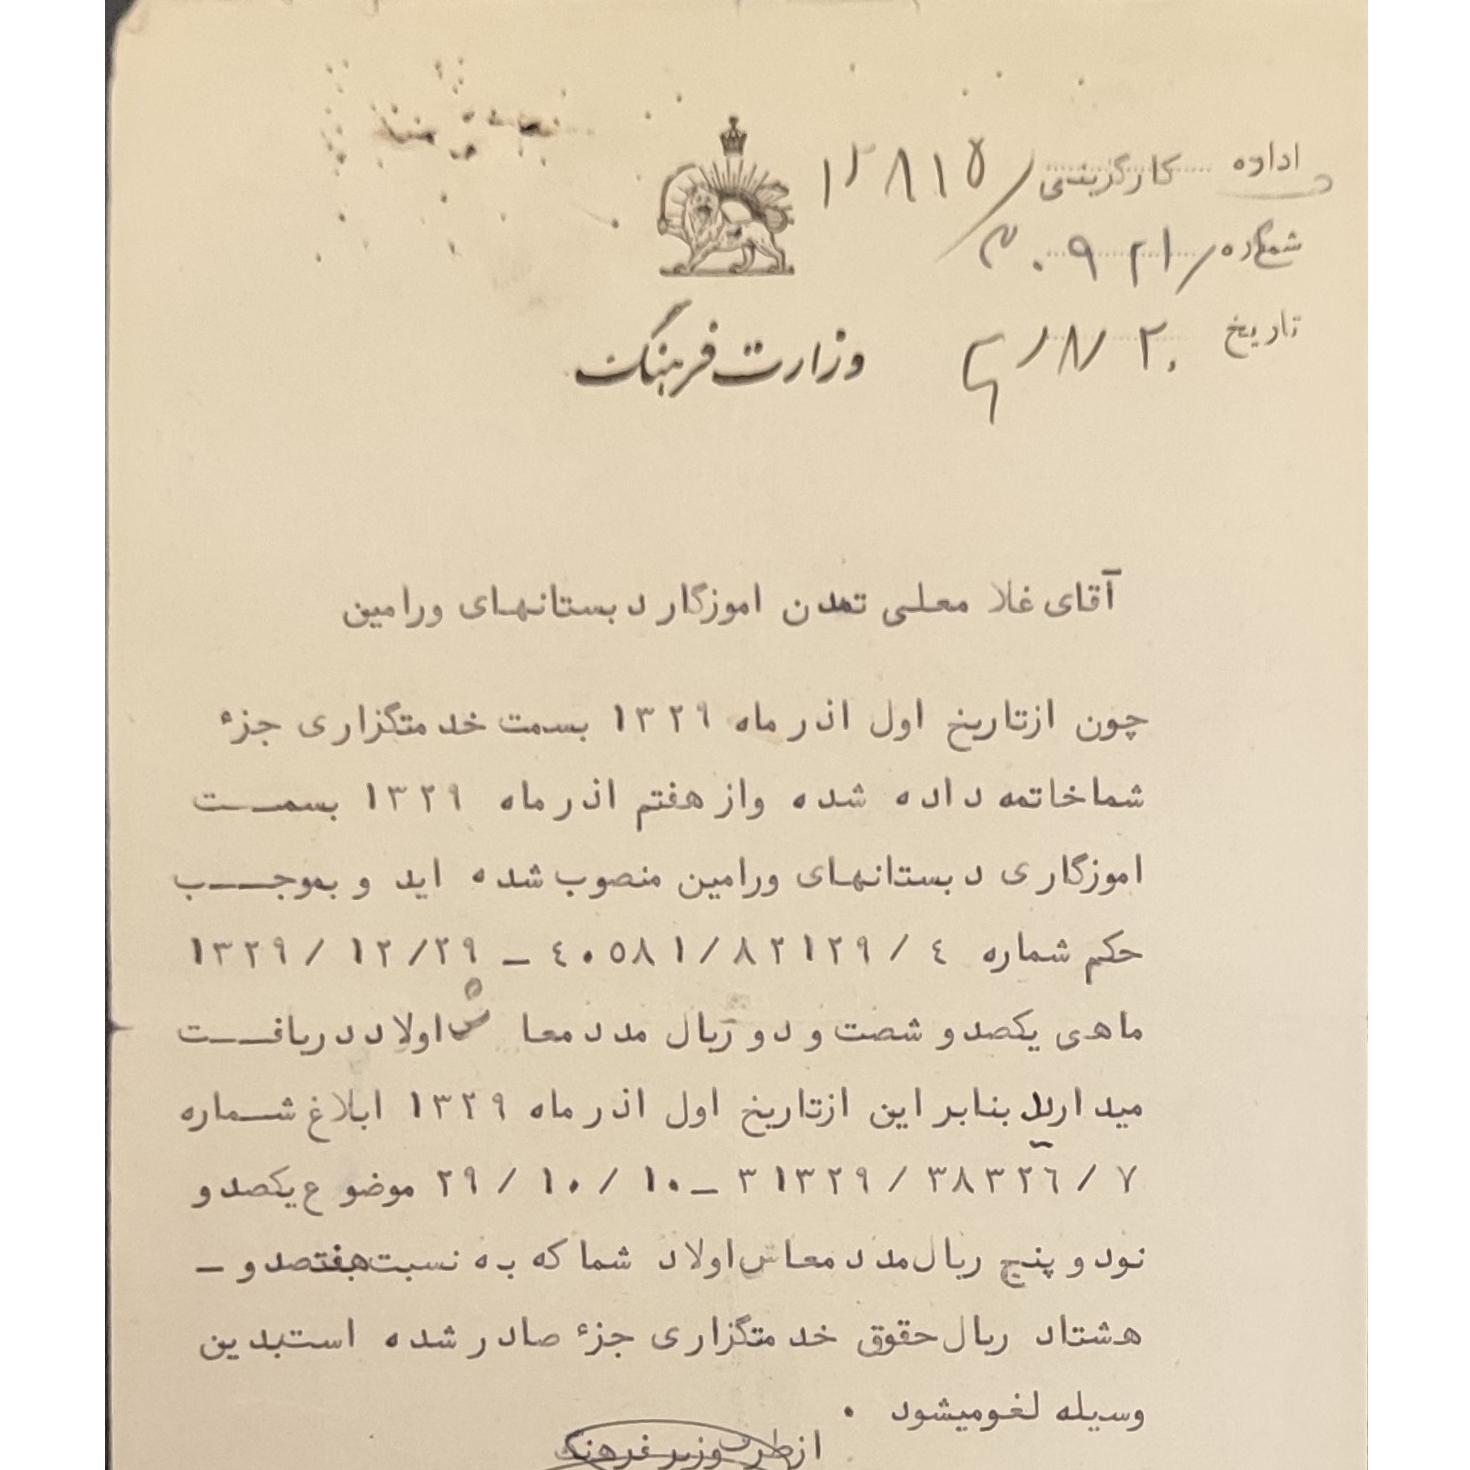 اداره کارگزینی
۱۲۸۱۵/
شماره ۳۰۹۲۱/
تاریخ ۳۰/۸/۲۰
وزارت فرهنگ
آقای غلامعلی تمدن اموزگار دبستانهای ورامین
چون ازتاریخ اول اذرماه ۱۳۲۹ بسمت خدمتگزاری جزء
شماخاتمه داده شده واز هفتم اذرماه ۱۳۲۹ بسمت
اموزگاری دبستانهای ورامین منصوب شده اید و بموجب
حکم شماره ۴/۸۲۱۲۹/۴۰۵۸۱ – ۱۳۲۹/۱۲/۲۹
ماهی یکصدو شصت و دو ریال مددمعاش اولاددریافت
میدارید بنابراین ازتاریخ اول اذرماه ۱۳۲۹ ابلاغ شماره
۷/۳۸۳۲۶/۳۱۳۲۹ – ۲۹/۱۰/۱۰ موضوع یکصدو
نودو پنج ریال مددمعاش اولاد شماکه به نسبت هفتصدو –
هشتاد ریال حقوق خدمتگزاری جزء صادرشده استبدین
وسیله لغومیشود .
ازطرف وزیرفرهنگ